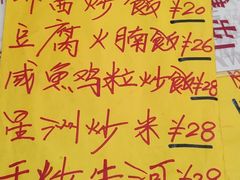 炒飯¥20
豆腐火腩飯¥26
咸魚鸡粒炒飯¥28
星洲炒米¥28
干炒牛河¥28